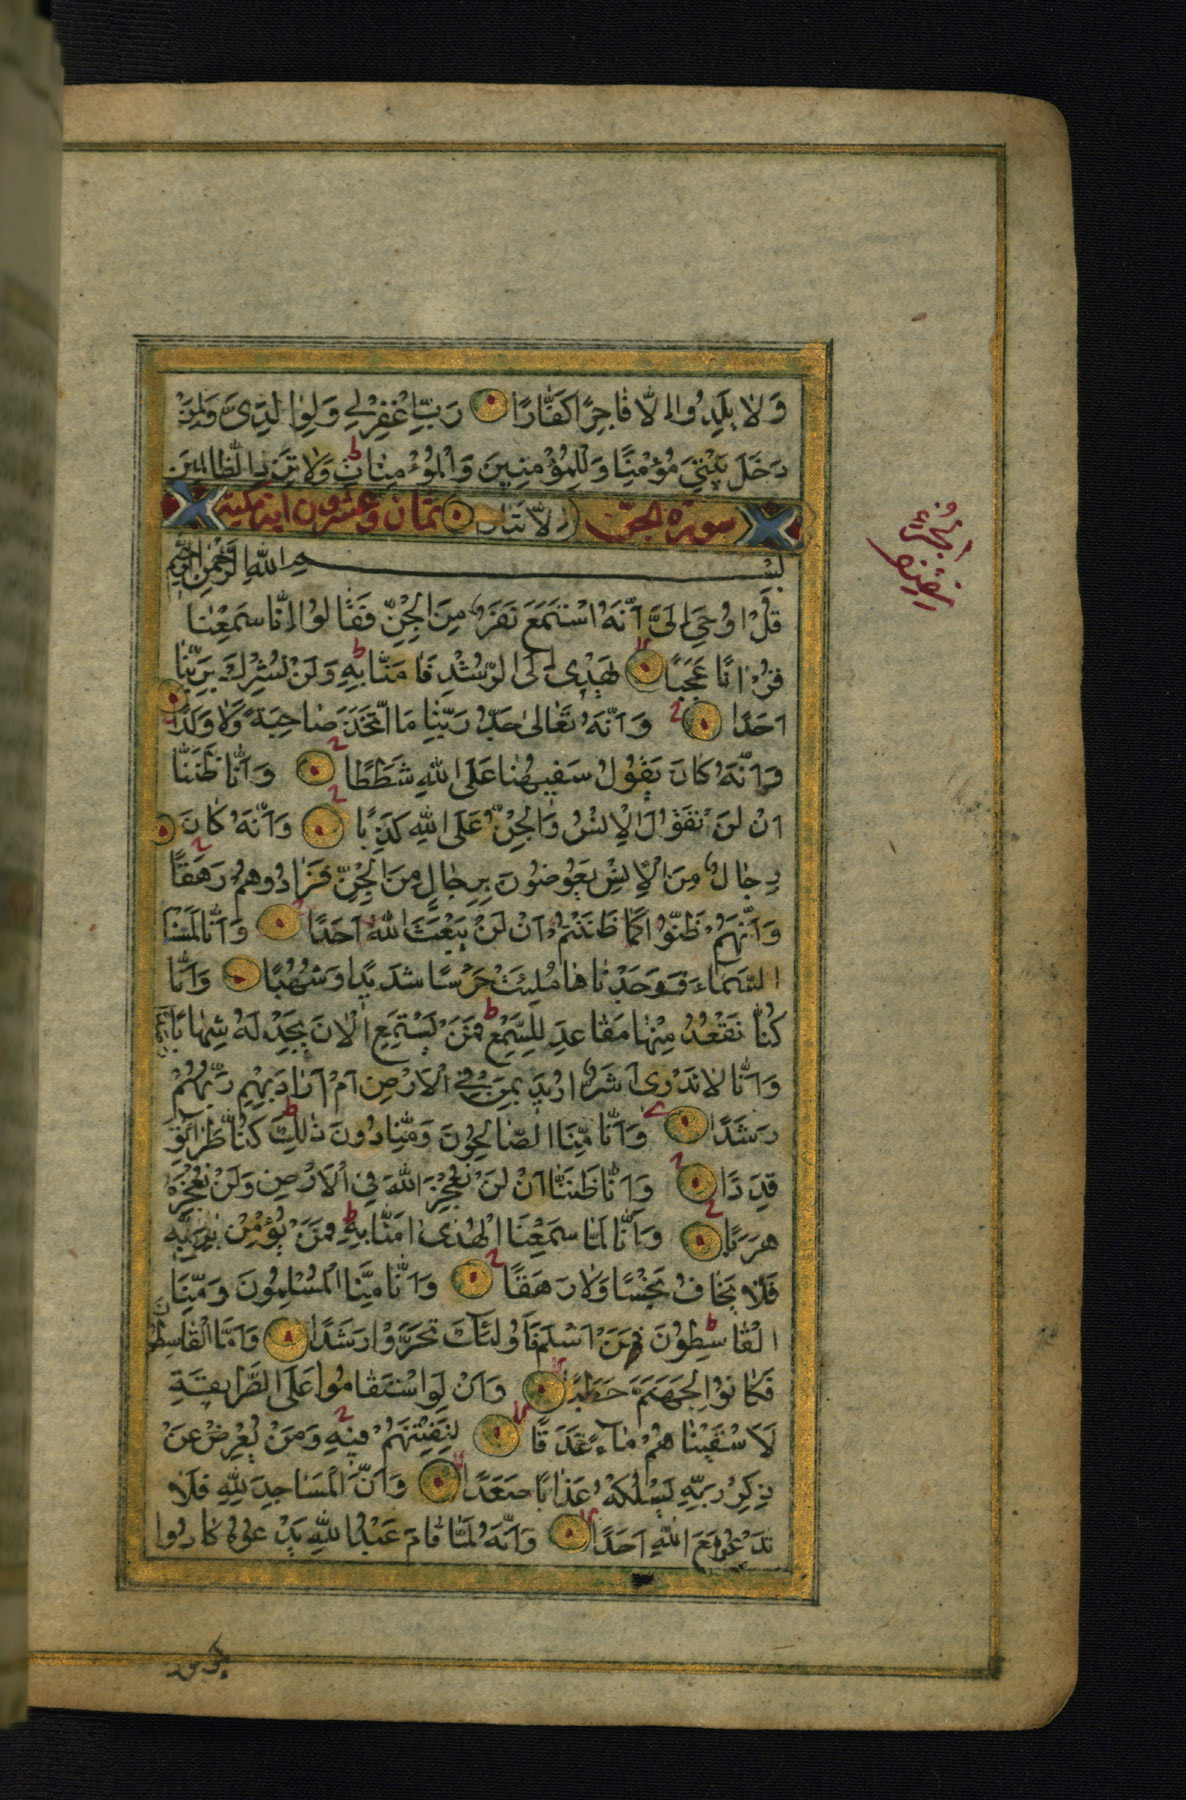 وَلَا يَلِدُوا اِلَّا فَاجِرًا كَفَّارًا رَبِّ اغْفِرْلِي وَلِوَالِدَيَّ وَلِمَنْ
دَخَلَ بَيْتِيَ مُؤْمِنًا وَلِلْمُؤْمِنِينَ وَالْمُؤْمِنَاتِ ط وَلَا تَزِدِ الظَّالِمِينَ
اِلَّا تَبَارًا
سورة الجن ثمان وعشرون اية مكية
بِسْمِ اللّٰهِ الرَّحْمٰنِ الرَّحِيمِ
قُلْ اُوحِيَ اِلَيَّ اَنَّهُ اسْتَمَعَ نَفَرٌ مِنَ الْجِنِّ فَقَالُوا اِنَّا سَمِعْنَا
قُرْاٰنًا عَجَبًا لا يَهْدِي اِلَى الرُّشْدِ فَاٰمَنَّا بِهِ ط وَلَنْ نُشْرِكَ بِرَبِّنَا
اَحَدًا وَاَنَّهُ تَعَالٰى جَدُّ رَبِّنَا مَا اتَّخَذَ صَاحِبَةً وَلَا وَلَدًا
وَاَنَّهُ كَانَ يَقُولُ سَفِيهُنَا عَلَى اللّٰهِ شَطَطًا وَاَنَّا ظَنَنَّا
اَنْ لَنْ تَقُولَ الْاِنْسُ وَالْجِنُّ عَلَى اللّٰهِ كَذِبًا وَاَنَّهُ كَانَ
رِجَالٌ مِنَ الْاِنْسِ يَعُوذُونَ بِرِجَالٍ مِنَ الْجِنِّ فَزَادُوهُمْ رَهَقًا
وَاَنَّهُمْ ظَنُّوا كَمَا ظَنَنْتُمْ اَنْ لَنْ يَبْعَثَ اللّٰهُ اَحَدًا وَاَنَّا لَمَسْنَا
السَّمَاءَ فَوَجَدْنَاهَا مُلِئَتْ حَرَسًا شَدِيدًا وَشُهُبًا وَاَنَّا
كُنَّا نَقْعُدُ مِنْهَا مَقَاعِدَ لِلسَّمْعِ ط فَمَنْ يَسْتَمِعِ الْاٰنَ يَجِدْ لَهُ شِهَابًا
وَاَنَّا لَا نَدْرِي اَشَرٌّ اُرِيدَ بِمَنْ فِي الْاَرْضِ اَمْ اَرَادَ بِهِمْ رَبُّهُمْ
رَشَدًا وَاَنَّا مِنَّا الصَّالِحُونَ وَمِنَّا دُونَ ذٰلِكَ ط كُنَّا طَرَائِقَ
قِدَدًا وَاَنَّا ظَنَنَّا اَنْ لَنْ نُعْجِزَ اللّٰهَ فِي الْاَرْضِ وَلَنْ نُعْجِزَهُ
هَرَبًا وَاَنَّا لَمَّا سَمِعْنَا الْهُدٰى اٰمَنَّا بِهِ ط فَمَنْ يُؤْمِنْ بِرَبِّهِ
فَلَا يَخَافُ بَخْسًا وَلَا رَهَقًا وَاَنَّا مِنَّا الْمُسْلِمُونَ وَمِنَّا
الْقَاسِطُونَ ط فَمَنْ اَسْلَمَ فَاُولٰئِكَ تَحَرَّوْا رَشَدًا وَاَمَّا الْقَاسِطُونَ
فَكَانُوا لِجَهَنَّمَ حَطَبًا وَاَنْ لَوِ اسْتَقَامُوا عَلَى الطَّرِيقَةِ
لَاَسْقَيْنَاهُمْ مَاءً غَدَقًا لِنَفْتِنَهُمْ فِيهِ وَمَنْ يُعْرِضْ عَنْ
ذِكْرِ رَبِّهِ يَسْلُكْهُ عَذَابًا صَعَدًا وَاَنَّ الْمَسَاجِدَ لِلّٰهِ فَلَا
تَدْعُوا مَعَ اللّٰهِ اَحَدًا وَاَنَّهُ لَمَّا قَامَ عَبْدُ اللّٰهِ يَدْعُوهُ كَادُوا